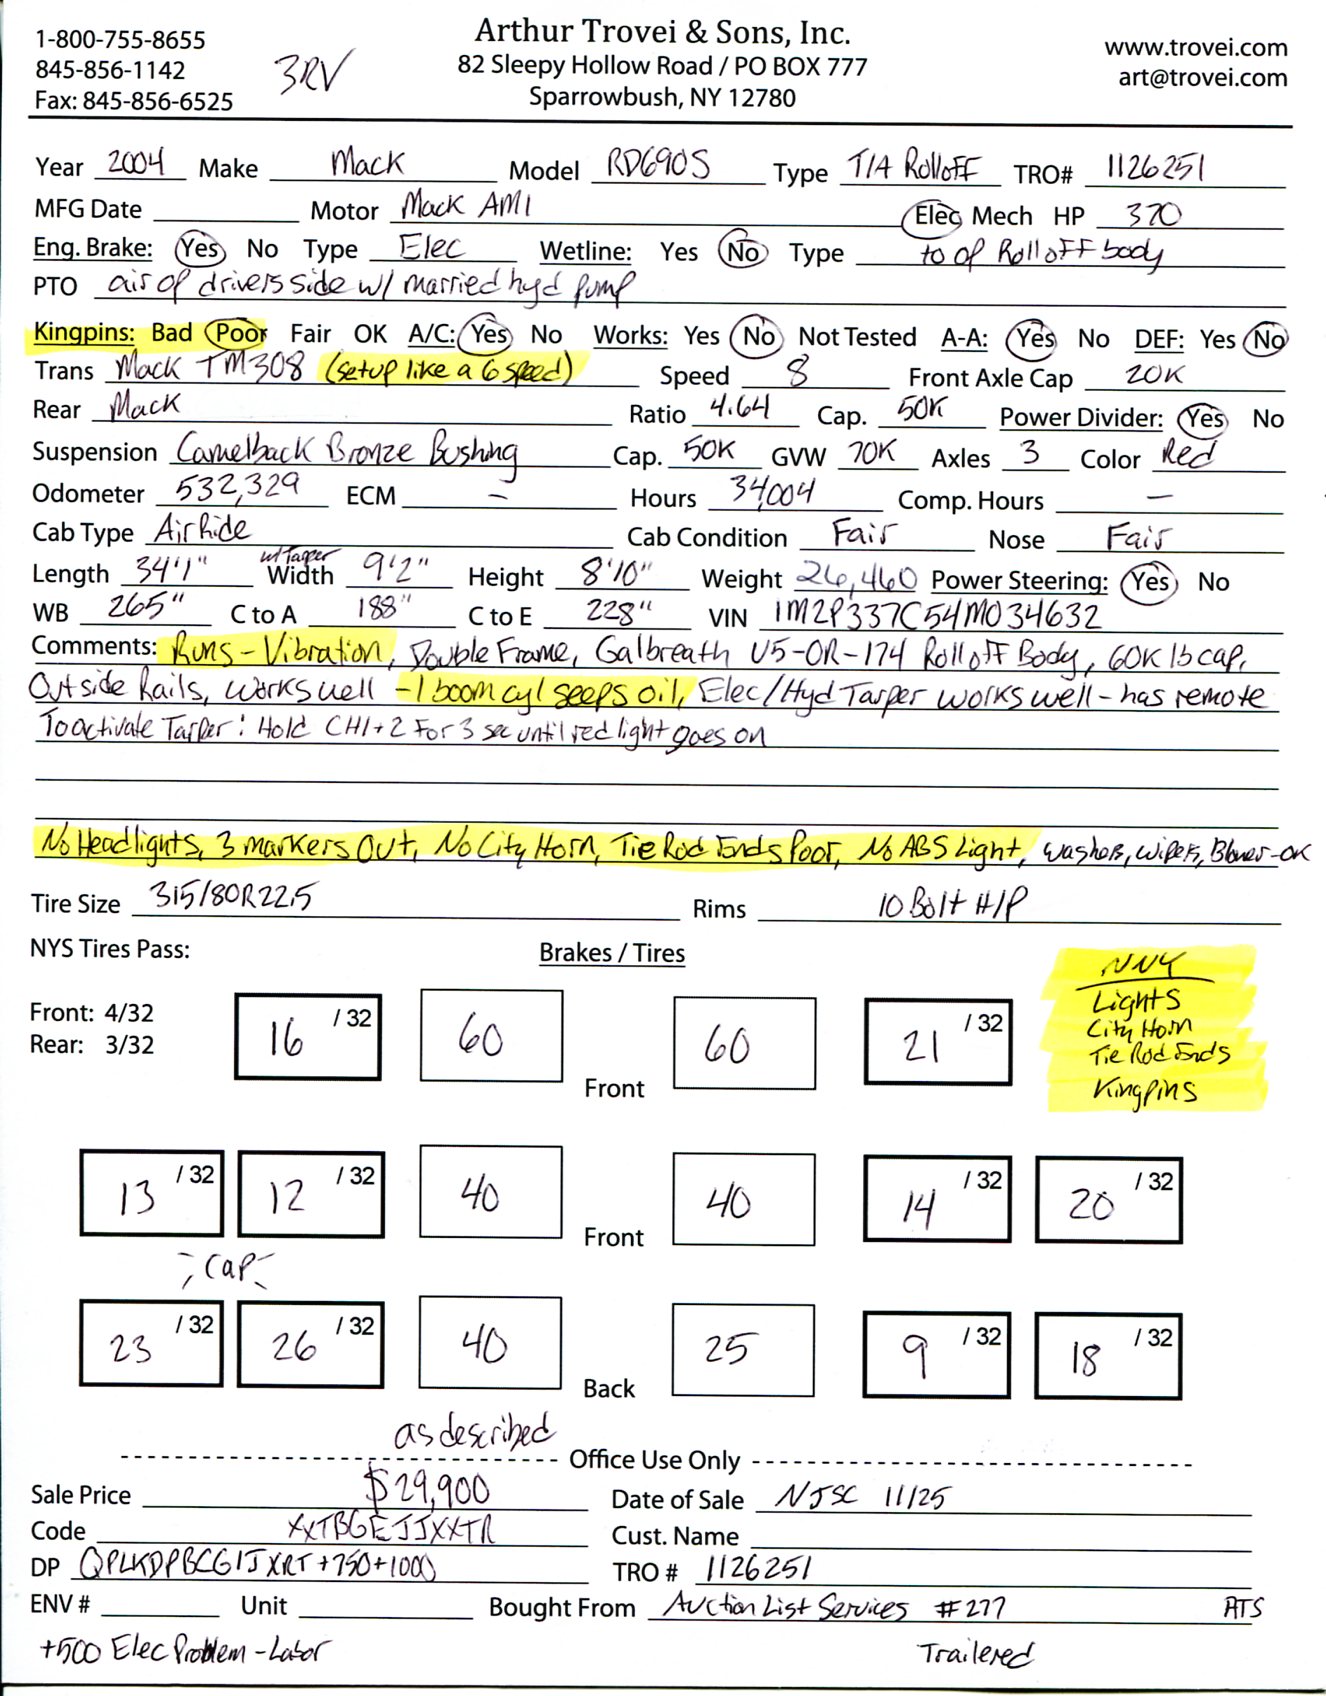 1-800-755-8655
845-856-1142
Fax: 845-856-6525
3RV
Arthur Trovei & Sons, Inc.
82 Sleepy Hollow Road / PO BOX 777
Sparrowbush, NY 12780
www.trovei.com
art@trovei.com
Year 2004 Make Mack Model RD690S Type T/A Rolloff TRO# 1126251
MFG Date Motor Mack AMI Elec Mech HP 370
Eng. Brake: Yes No Type Elec Wetline: Yes No Type to op Rolloff body
PTO air op drivers side w/ married hyd pump
Kingpins: Bad Poor Fair OK A/C: Yes No Works: Yes No Not Tested A-A: Yes No DEF: Yes No
Trans Mack TM308 (setup like a 6 speed) Speed 8 Front Axle Cap 20K
Rear Mack Ratio 4.64 Cap. 50K Power Divider: Yes No
Suspension Camelback Bronze Bushing Cap. 50K GVW 70K Axles 3 Color Red
Odometer 532,329 ECM – Hours 34,004 Comp. Hours –
Cab Type Air Ride Cab Condition Fair Nose Fair
Length 34'1" w/ Tarper Width 9'2" Height 8'10" Weight 26,460 Power Steering: Yes No
WB 265" C to A 188" C to E 228" VIN 1M2P337C54M034632
Comments: Runs - Vibration, Double Frame, Galbreath U5-OR-174 Rolloff Body, 60K lb cap,
Outside Rails, works well - 1 boom cyl seeps oil, Elec/Hyd Tarper works well - has remote
To activate Tarper: Hold CH1+2 For 3 sec until red light goes on
No Headlights, 3 markers Out, No City Horn, Tie Rod Ends Poor, No ABS Light, Washers, Wipers, Blower-OK
Tire Size 315/80R22.5 Rims 10 Bolt H/P
NYS Tires Pass: Brakes / Tires
Front: 4/32
Rear: 3/32
NNY
Lights
City Horn
Tie Rod Ends
Kingpins
16 /32 60 Front 60 21 /32
13 /32 12 /32 40 Front 40 14 /32 20 /32
Cap
23 /32 26 /32 40 Back 25 9 /32 18 /32
as described
Office Use Only
Sale Price $29,900 Date of Sale NJSC 11/25
Code XXTBGEJJXXTR Cust. Name
DP QPLKDPBCGIJXRT +750+1000 TRO # 1126251
ENV # Unit Bought From Auction List Services #277 ATS
+500 Elec Problem - Labor Trailered